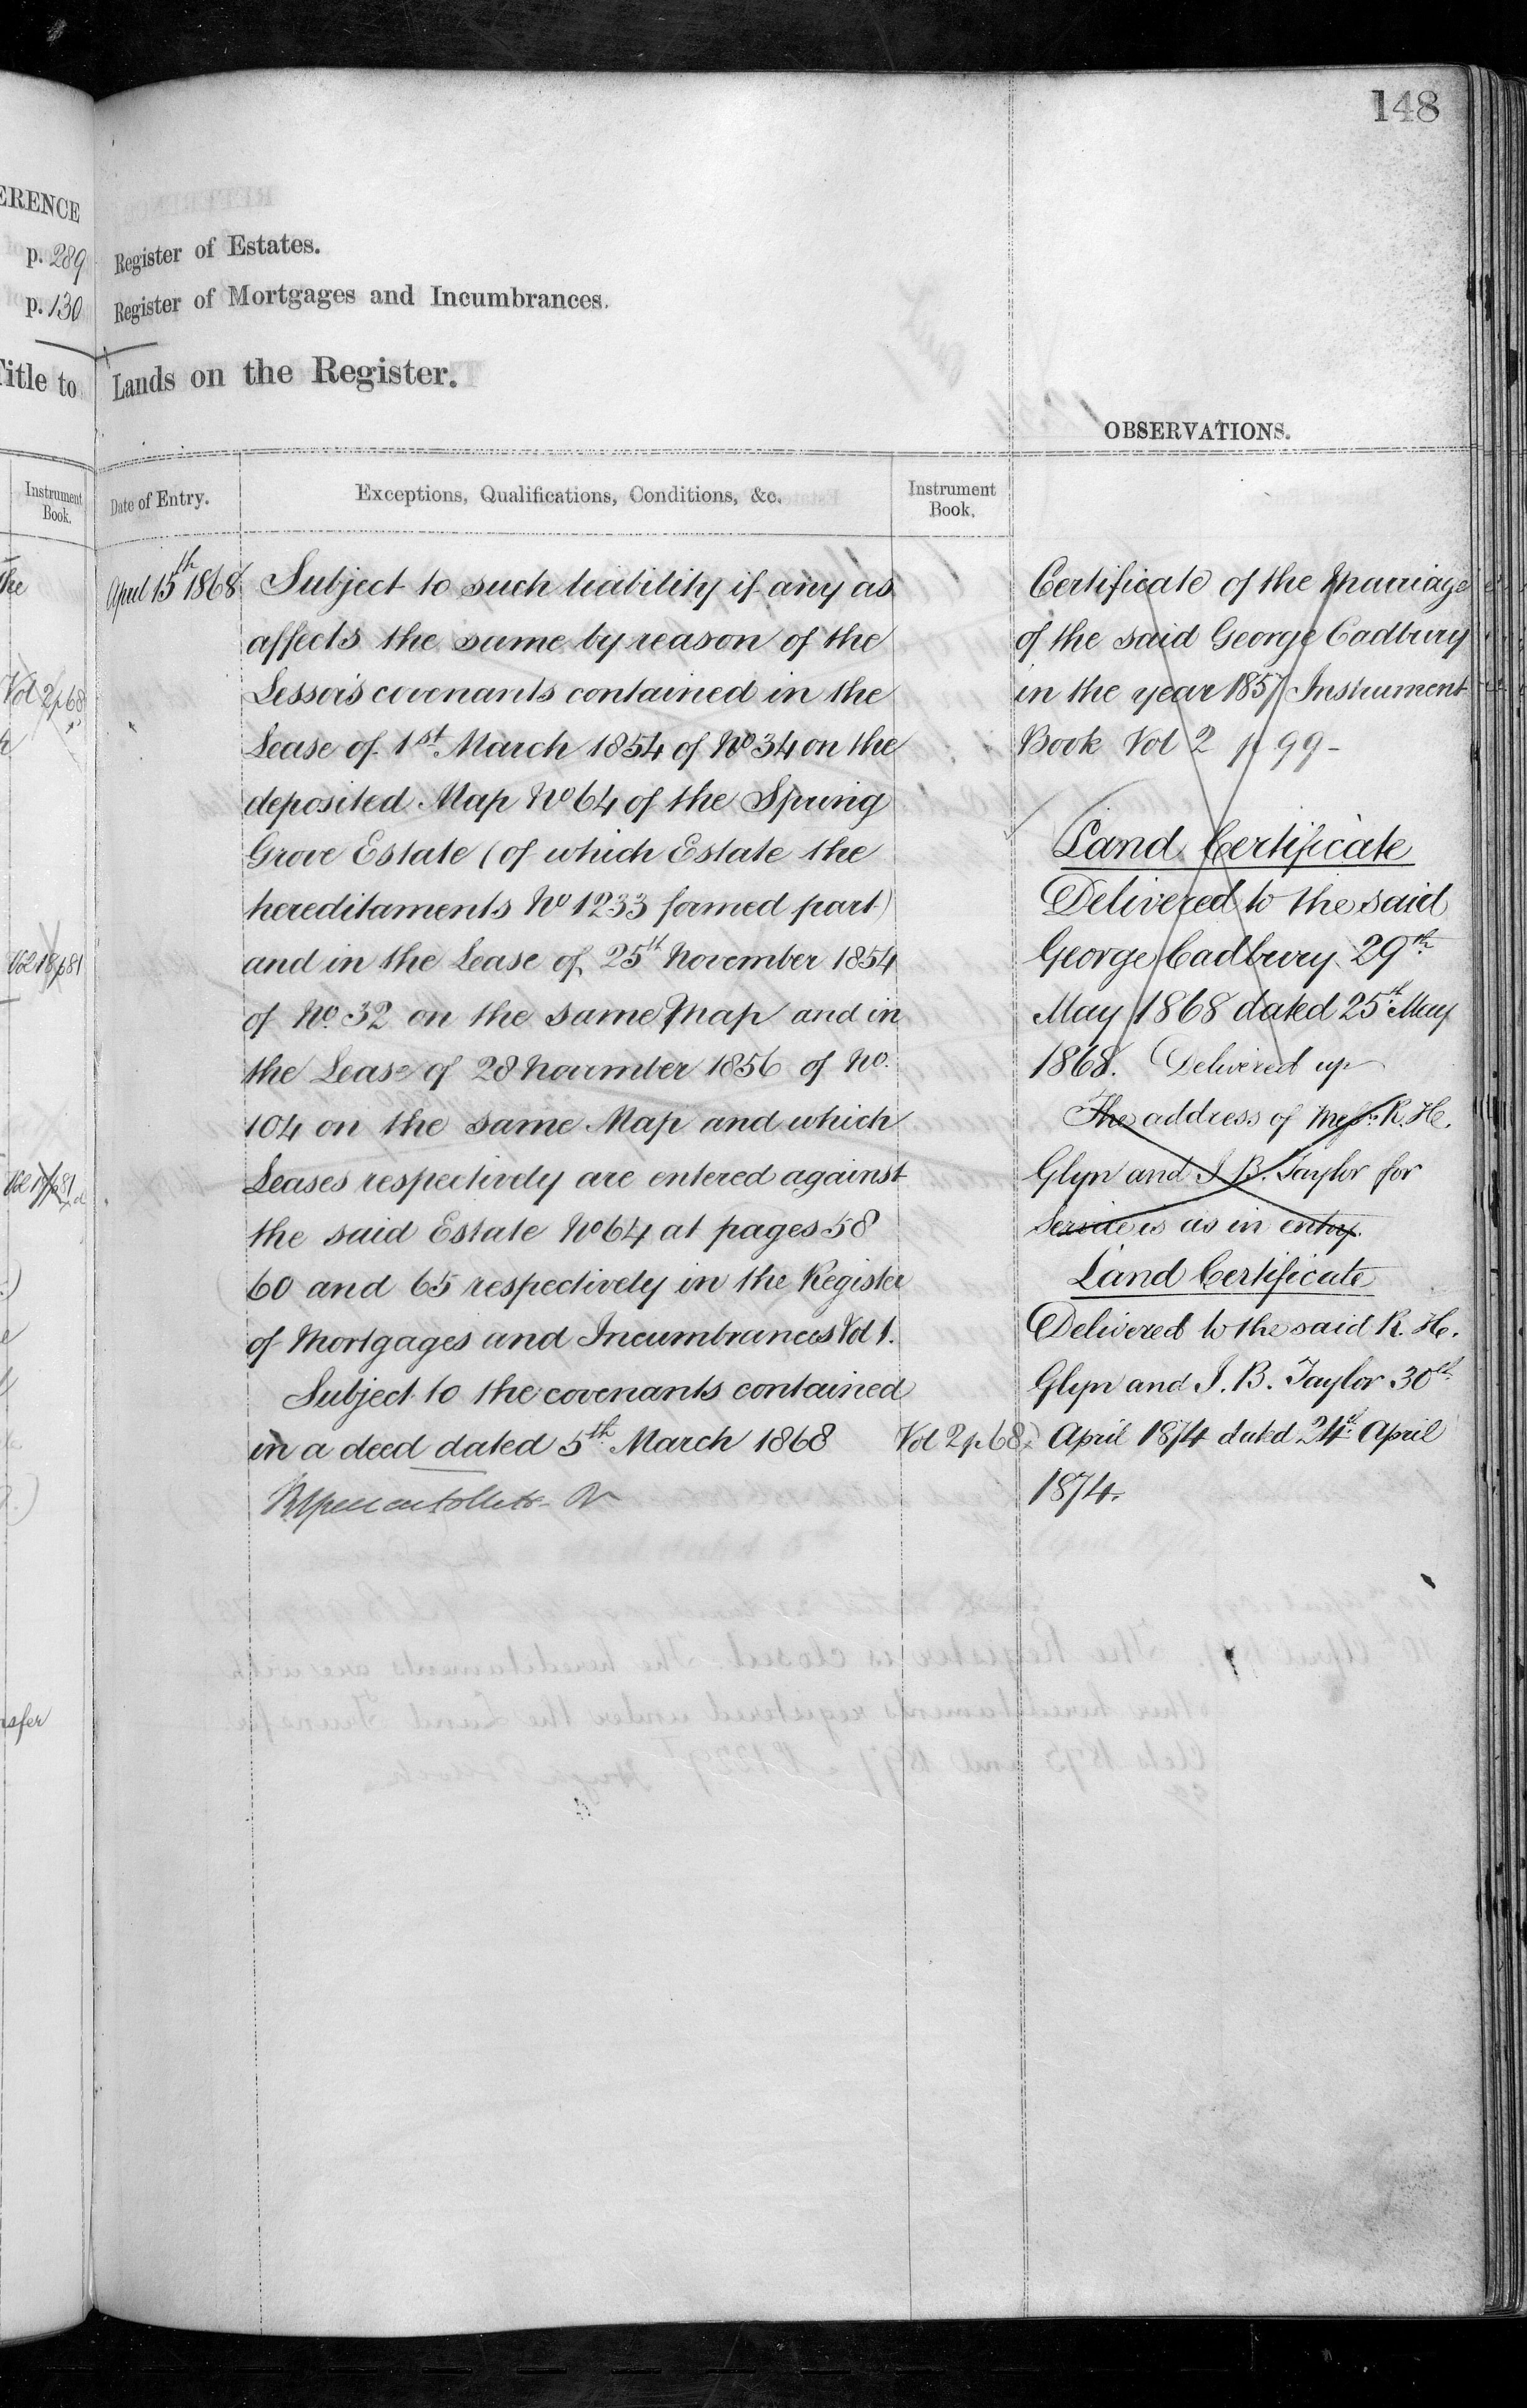 148
ERENCE
p. 289 Register of Estates.
p. 130 Register of Mortgages and Incumbrances.
Title to Lands on the Register.
OBSERVATIONS.
Instrument Book.
Date of Entry.
Exceptions, Qualifications, Conditions, &c.
Instrument Book.
April 15th 1868
Subject to such liability if any as
affects the same by reason of the
Lessors covenants contained in the
Lease of 1st March 1854 of No 34 on the
deposited Map No 64 of the Spring
Grove Estate (of which Estate the
hereditaments No 1233 formed part)
and in the Lease of 25th November 1854
of No. 32 on the same Map and in
the Lease of 28 November 1856 of No.
104 on the same Map and which
Leases respectively are entered against
the said Estate No 64 at pages 58
60 and 65 respectively in the Register
of Mortgages and Incumbrances Vol 1.
Subject to the covenants contained
in a deed dated 5th March 1868
Vol 2 p 68
Certificate of the Marriage
of the said George Cadbury
in the year 1857 Instrument
Book Vol 2 p 99-
Land Certificate
Delivered to the said
George Cadbury 29th
May 1868 dated 25th May
1868. Delivered up
The address of Messrs R. H.
Glyn and I. B. Taylor for
Service is as in entry.
Land Certificate
Delivered to the said R. H.
Glyn and I. B. Taylor 30th
April 1874 dated 24th April
1874.
the
Vol 2 p 68
Vol 18 p 81
nsfer